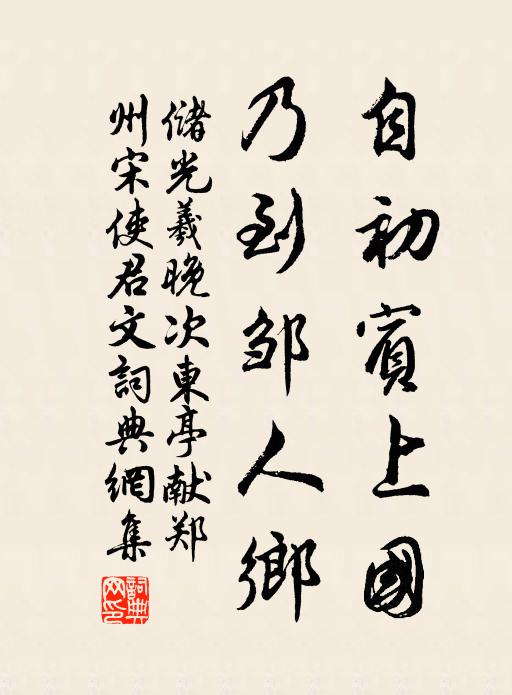 自初賓上國
乃到邹人鄉
儲光羲晚次東亭献郑
州宋使君文詞典網集